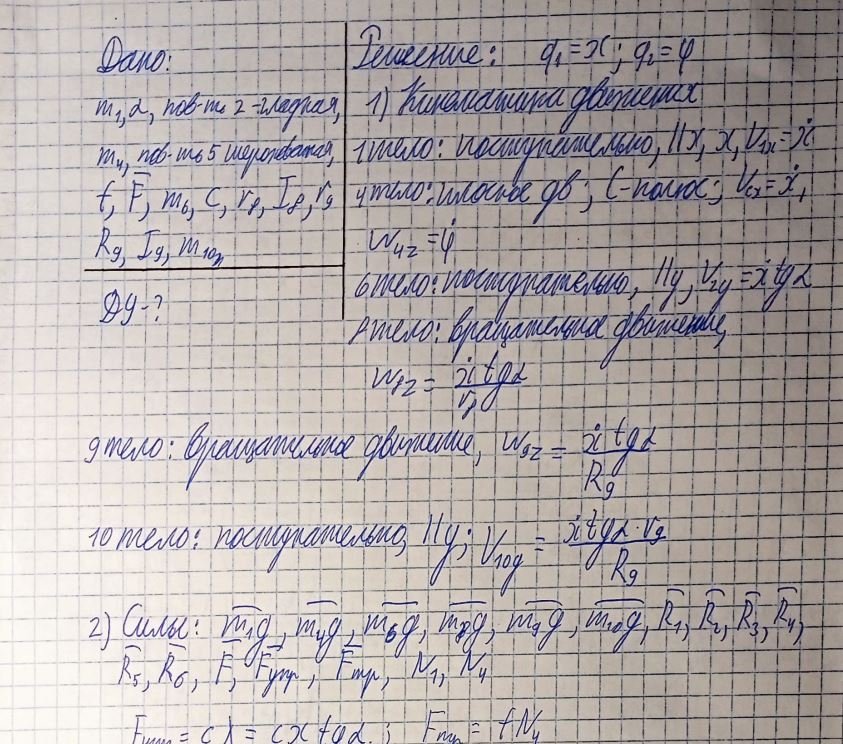 Дано:
m₁, α, пов-ть 2-гладкая,
m₄, пов-ть 5 шероховатая,
f, F̅, m₆, c, r₈, I₈, r₉
R₉, I₉, m₁₀
ДУ-?
Решение: q₁ = x; q₂ = φ
1) Кинематика движения
1 тело: поступательно, ||x, x, V₁ₓ = ẋ
4 тело: плоское дв; C-полюс; V_cx = ẋ,
ω₄z = φ̇
6 тело: поступательно, ||y, V_zy = ẋ tgα
8 тело: вращательное движение,
ω₈z = ẋ tgα / r₈
9 тело: вращательное движение, ω₉z = ẋ tgα / R₉
10 тело: поступательно, ||y; V₁₀y = ẋ tgα · r₉ / R₉
2) Силы: m̅₁g̅, m̅₄g̅, m̅₆g̅, m̅₈g̅, m̅₉g̅, m̅₁₀g̅, R̅₁, R̅₂, R̅₃, R̅₄,
R̅₅, R̅₆, F̅, F̅упр, F̅тр, N₁, N₄
Fупр = cλ = cx tgα; Fтр = fN₄